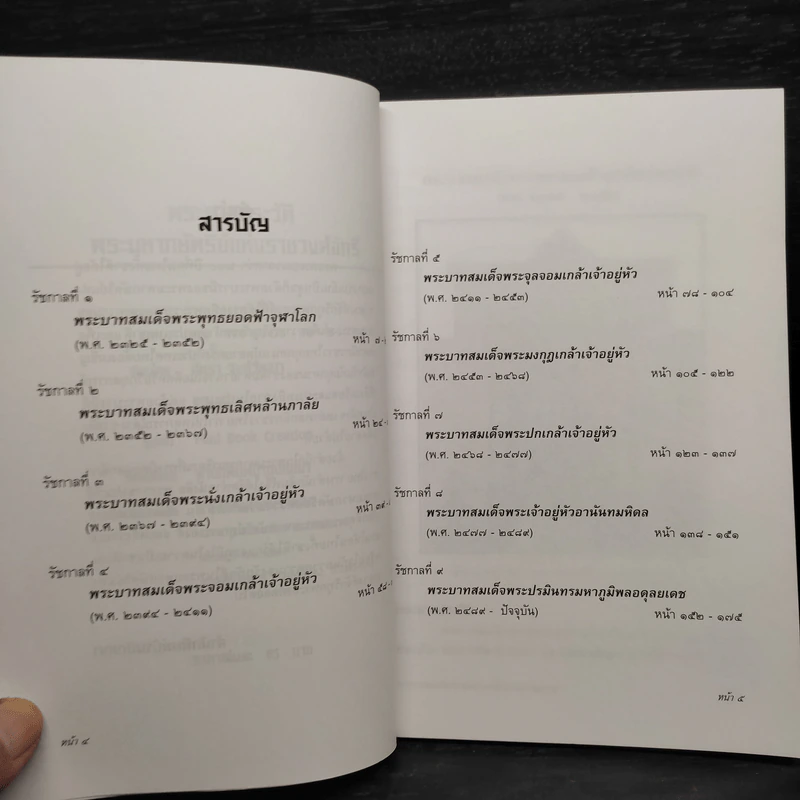 สารบัญ
รัชกาลที่ ๑
พระบาทสมเด็จพระพุทธยอดฟ้าจุฬาโลก
(พ.ศ. ๒๓๒๕ - ๒๓๕๒)
หน้า ๗-
รัชกาลที่ ๒
พระบาทสมเด็จพระพุทธเลิศหล้านภาลัย
(พ.ศ. ๒๓๕๒ - ๒๓๖๗)
หน้า ๒๔-
รัชกาลที่ ๓
พระบาทสมเด็จพระนั่งเกล้าเจ้าอยู่หัว
(พ.ศ. ๒๓๖๗ - ๒๓๙๔)
หน้า ๓๙-
รัชกาลที่ ๔
พระบาทสมเด็จพระจอมเกล้าเจ้าอยู่หัว
(พ.ศ. ๒๓๙๔ - ๒๔๑๑)
หน้า ๕๘-
หน้า ๔
รัชกาลที่ ๕
พระบาทสมเด็จพระจุลจอมเกล้าเจ้าอยู่หัว
(พ.ศ. ๒๔๑๑ - ๒๔๕๓) หน้า ๗๘ - ๑๐๔
รัชกาลที่ ๖
พระบาทสมเด็จพระมงกุฎเกล้าเจ้าอยู่หัว
(พ.ศ. ๒๔๕๓ - ๒๔๖๘) หน้า ๑๐๕ - ๑๒๒
รัชกาลที่ ๗
พระบาทสมเด็จพระปกเกล้าเจ้าอยู่หัว
(พ.ศ. ๒๔๖๘ - ๒๔๗๗) หน้า ๑๒๓ - ๑๓๗
รัชกาลที่ ๘
พระบาทสมเด็จพระเจ้าอยู่หัวอานันทมหิดล
(พ.ศ. ๒๔๗๗ - ๒๔๘๙) หน้า ๑๓๘ - ๑๕๑
รัชกาลที่ ๙
พระบาทสมเด็จพระปรมินทรมหาภูมิพลอดุลยเดช
(พ.ศ. ๒๔๘๙ - ปัจจุบัน) หน้า ๑๕๒ - ๑๗๕
หน้า ๕